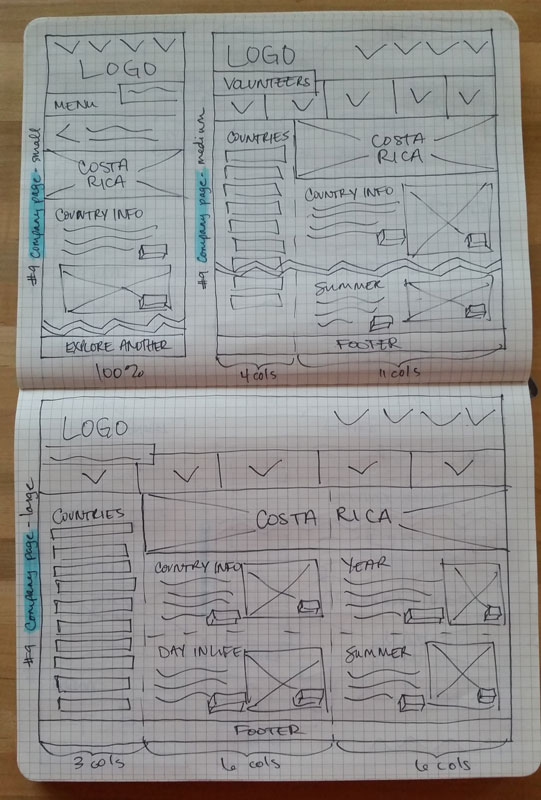 #9 Company page - small
LOGO
MENU
COSTA
RICA
COUNTRY INFO
EXPLORE ANOTHER
100%
#9 Company page - medium
LOGO
VOLUNTEERS
COUNTRIES
COSTA
RICA
COUNTRY INFO
SUMMER
FOOTER
4 cols
11 cols
#9 Company page - large
LOGO
COUNTRIES
COSTA RICA
COUNTRY INFO
YEAR
DAY IN LIFE
SUMMER
FOOTER
3 cols
6 cols
6 cols